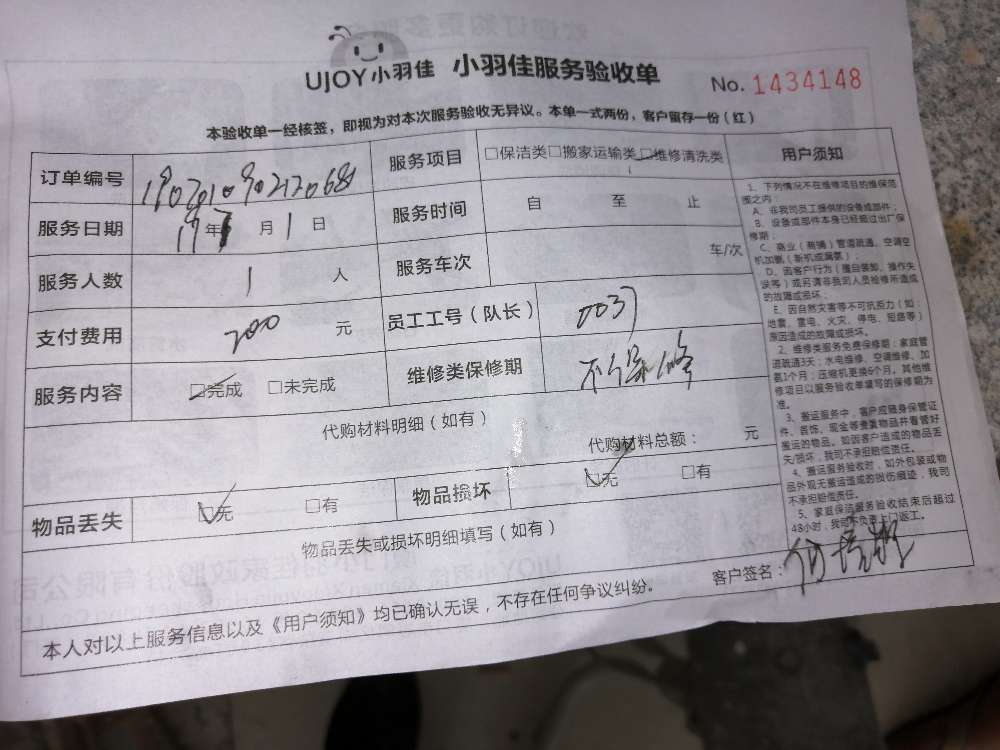 UJOY小羽佳 小羽佳服务验收单 No. 1434148
本验收单一经核签，即视为对本次服务验收无异议。本单一式两份，客户留存一份（红）
订单编号 服务项目 □保洁类□搬家运输类□维修清洗类
服务日期 19年 月1日 服务时间 自 至 止
服务人数 1 人 服务车次 车/次
支付费用 200 元 员工工号（队长） 0037
服务内容 □完成 □未完成 维修类保修期 不保修
代购材料明细（如有）
代购材料总额： 元
物品丢失 □无 □有 物品损坏 □无 □有
物品丢失或损坏明细填写（如有）
客户签名：
本人对以上服务信息以及《用户须知》均已确认无误，不存在任何争议纠纷。
用户须知
1、下列情况不在维修项目的维保范
围之内：
A、非我司员工提供的设备或部件；
B、设备或部件本身已经超过出厂保
修期；
C、商业（商铺）管道疏通，空调空
机加氨（新机或漏氨）；
D、因客户行为（擅自装卸、操作失
误等）或另请非我司人员检修所造成
的故障或损坏；
E、因自然灾害等不可抗拒力（如：
地震、雷电、火灾、停电、短路等）
原因造成的故障或损坏。
2、维修类服务免费保修期：家庭管
道疏通3天；水电维修、空调维修、加
氨1个月；压缩机更换6个月。其他维
修项目以服务验收单填写的保修期为
准。
3、搬运服务中，客户应随身保管证
件、首饰、现金等贵重物品并看管好
搬运的物品。如因客户造成的物品丢
失/损坏，我司不承担赔偿责任。
4、搬运服务验收时，如外包装或物
品外观无搬运造成的损伤痕迹，我司
不承担赔偿责任。
5、家庭保洁服务验收结束后超过
48小时，我司不负责上门返工。